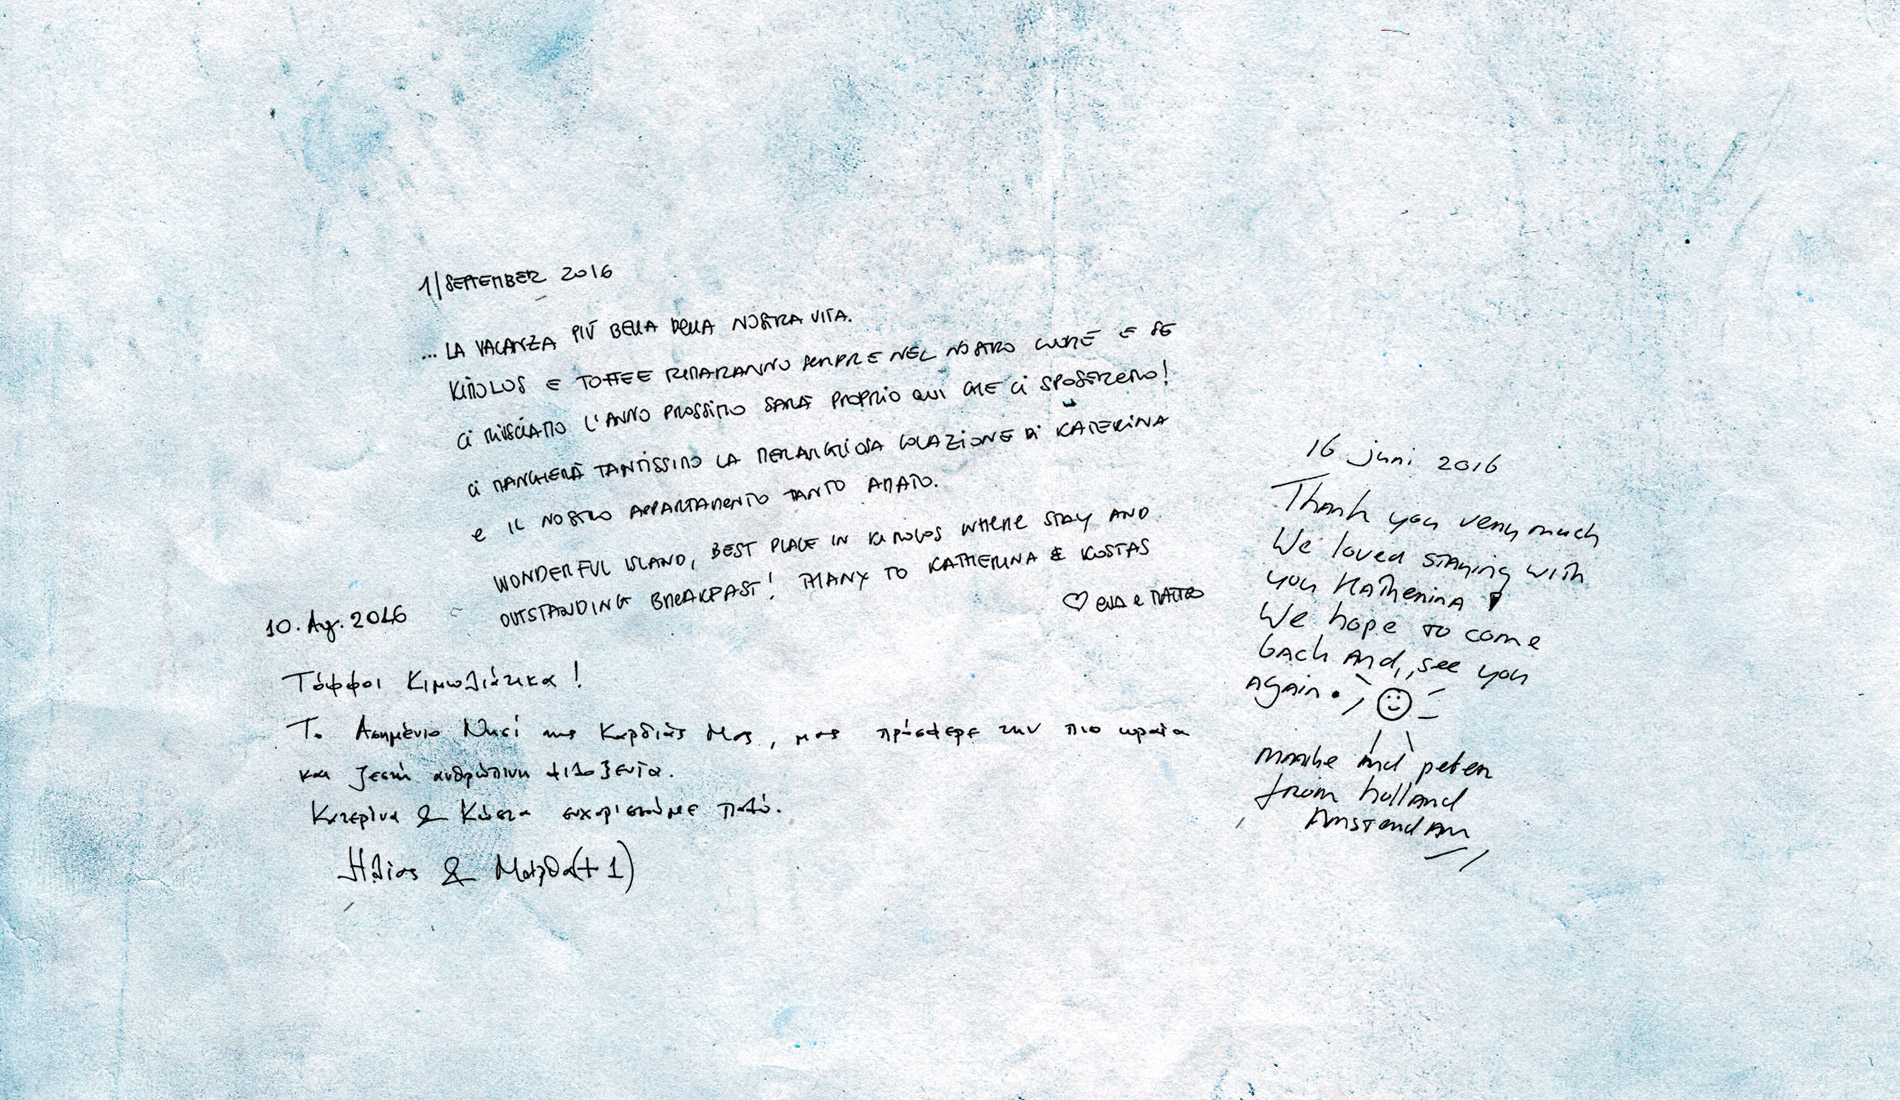 1/SEPTEMBER 2016
... LA VACANZA PIÚ BELLA DELLA NOSTRA VITA.
KIMOLOS E TOFFEE RIMARANNO SEMPRE NEL NOSTRO CUORE E SE
CI RIUSCIAMO L'ANNO PROSSIMO SARÀ PROPRIO QUI CHE CI SPOSEREMO!
CI MANCHERÀ TANTISSIMO LA MERAVIGLIOSA COLAZIONE DI KATERINA
e IL NOSTRO APPARTAMENTO TANTO AMATO.
WONDERFUL ISLAND, BEST PLACE IN KIMOLOS WHERE STAY AND
OUTSTANDING BREAKFAST! THANX TO KATHERINA & KOSTAS
♡ EVA e MATTEO
10. Αυγ. 2016
Τόφφοι Κιμωλιάτικα!
Το Ασημένιο Νησί της Καρδιάς Μας, μας πρόσφερε την πιο ωραία
και ζεστή ανθρώπινη φιλοξενία.
Κατερίνα & Κώστα ευχαριστούμε πολύ.
Ηλίας & Μάρθα (+1)
16 juni 2016
Thank you very much
We loved staying with
you Katherina
We hope to come
back and, see you
again.
and peter
from holland
Amsterdam